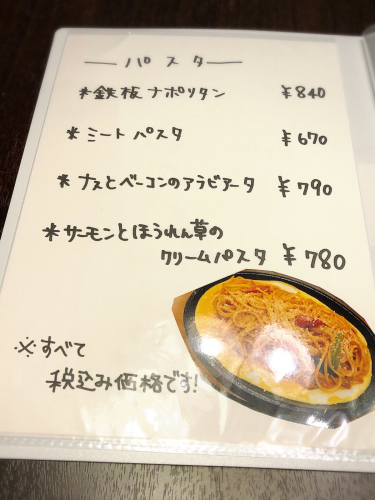 パスタ
*鉄板ナポリタン ¥840
*ミートパスタ ¥670
*ナスとベーコンのアラビアータ ¥790
*サーモンとほうれん草の
クリームパスタ ¥780
※すべて
税込み価格です!